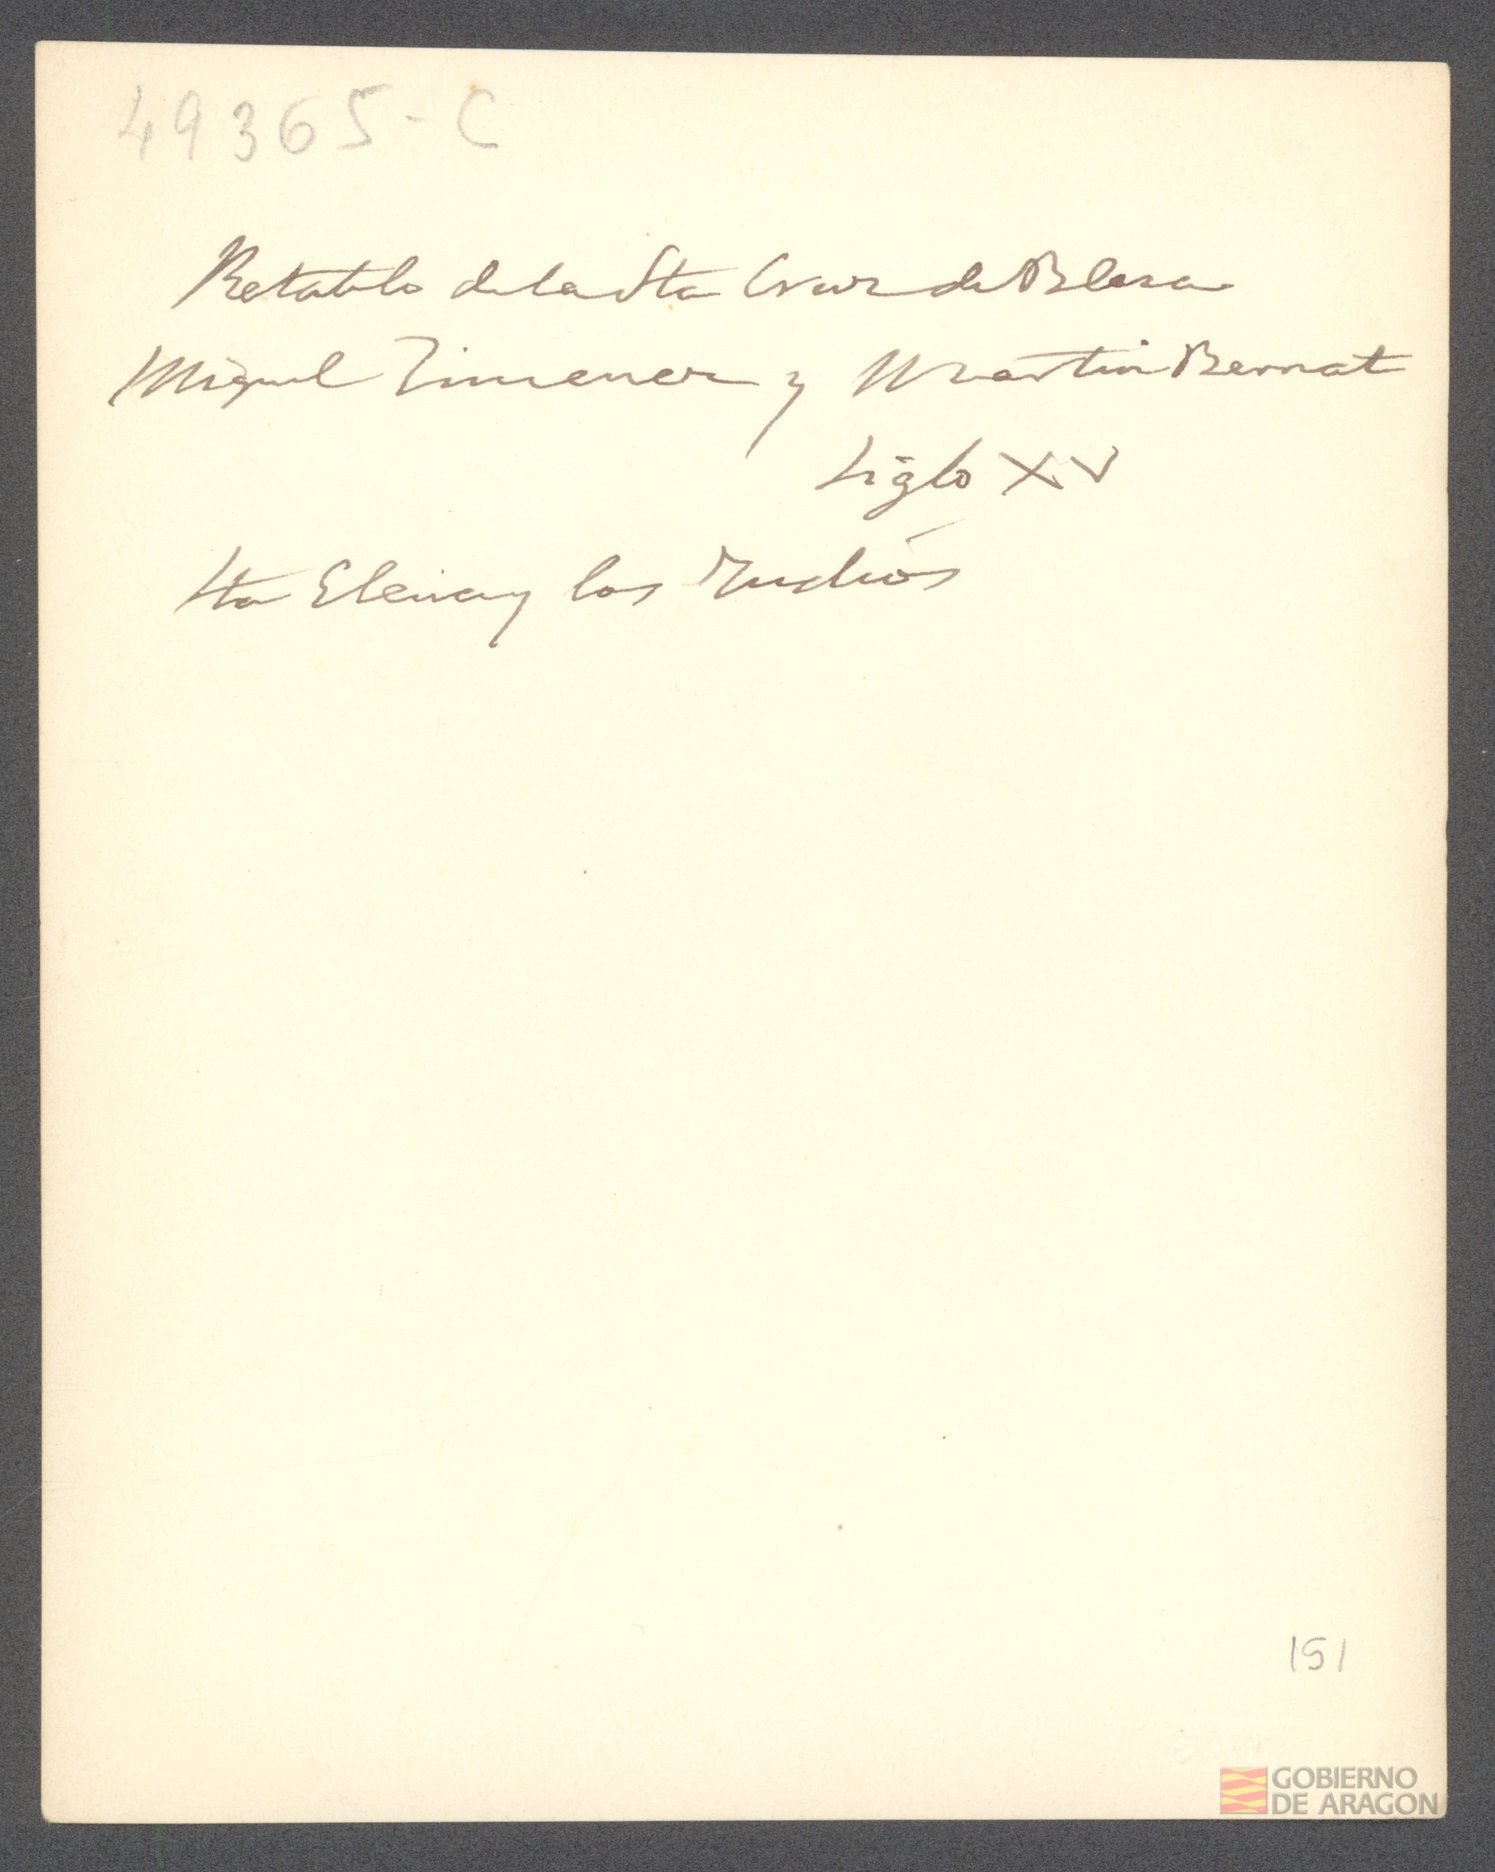 49365-C
Retablo de la Sta Cruz de Blesa
Miguel Jimenez y Martin Bernat
Siglo XV
Sta Elena y los Judiós
151
GOBIERNO
DE ARAGON